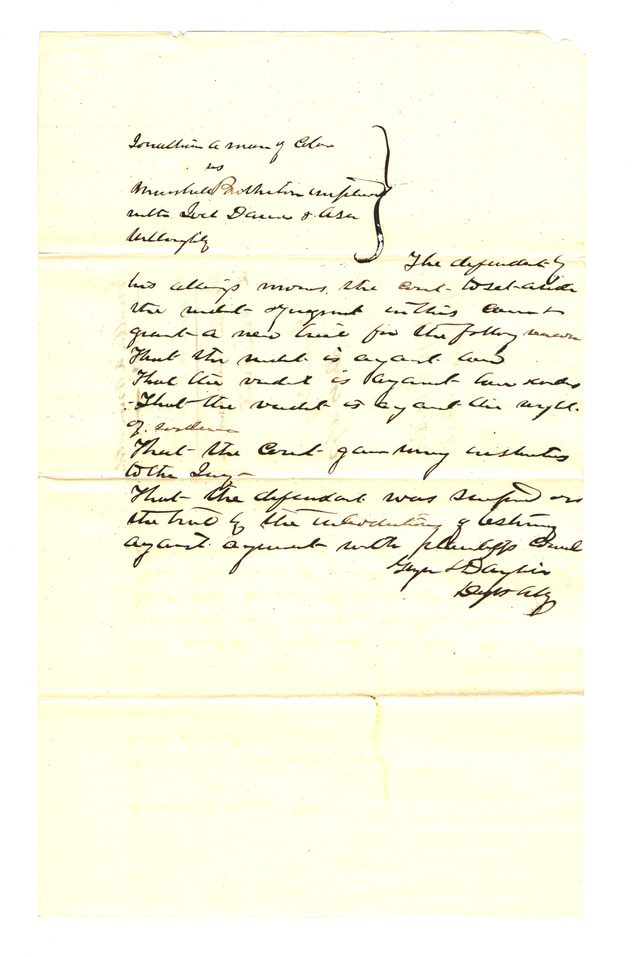 Jonathan a man of Color
vs
Marshall Rotherton impleaded
with Joel Dawn & Asa
Willoughby
The defendant by
his attorneys moves the court to set aside
the verdict & judgment in this cause &
grant a new trial for the following reasons
That the verdict is against law
That the verdict is against law & evidence
That the verdict is against the weight
of evidence
That the Court gave wrong instructions
to the Jury
That the defendant was surprised on
the trial by the introduction of testimony
against agreement with plaintiffs Council
Defts Atty